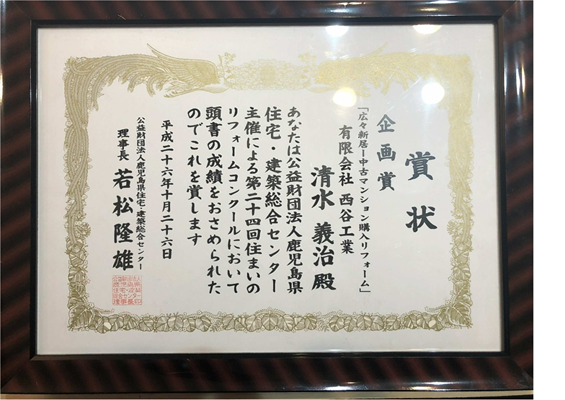 賞状
企画賞
「広々新居!中古マンション購入リフォーム」
有限会社 西谷工業
清水 義治殿
あなたは公益財団法人鹿児島県
住宅・建築総合センター
主催による第二十四回住まいの
リフォームコンクールにおいて
頭書の成績をおさめられた
のでこれを賞します
平成二十六年十月二十六日
公益財団法人鹿児島県住宅・建築総合センター
理事長 若松隆雄